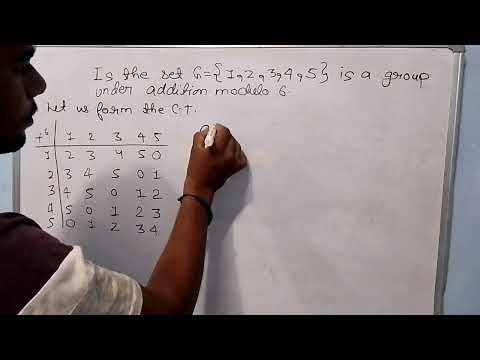 Is the set G={1,2,3,4,5} is a group
under addition modulo 6.
Let us form the C.T.
+6 1 2 3 4 5
1 2 3 4 5 0
2 3 4 5 0 1
3 4 5 0 1 2
4 5 0 1 2 3
5 0 1 2 3 4